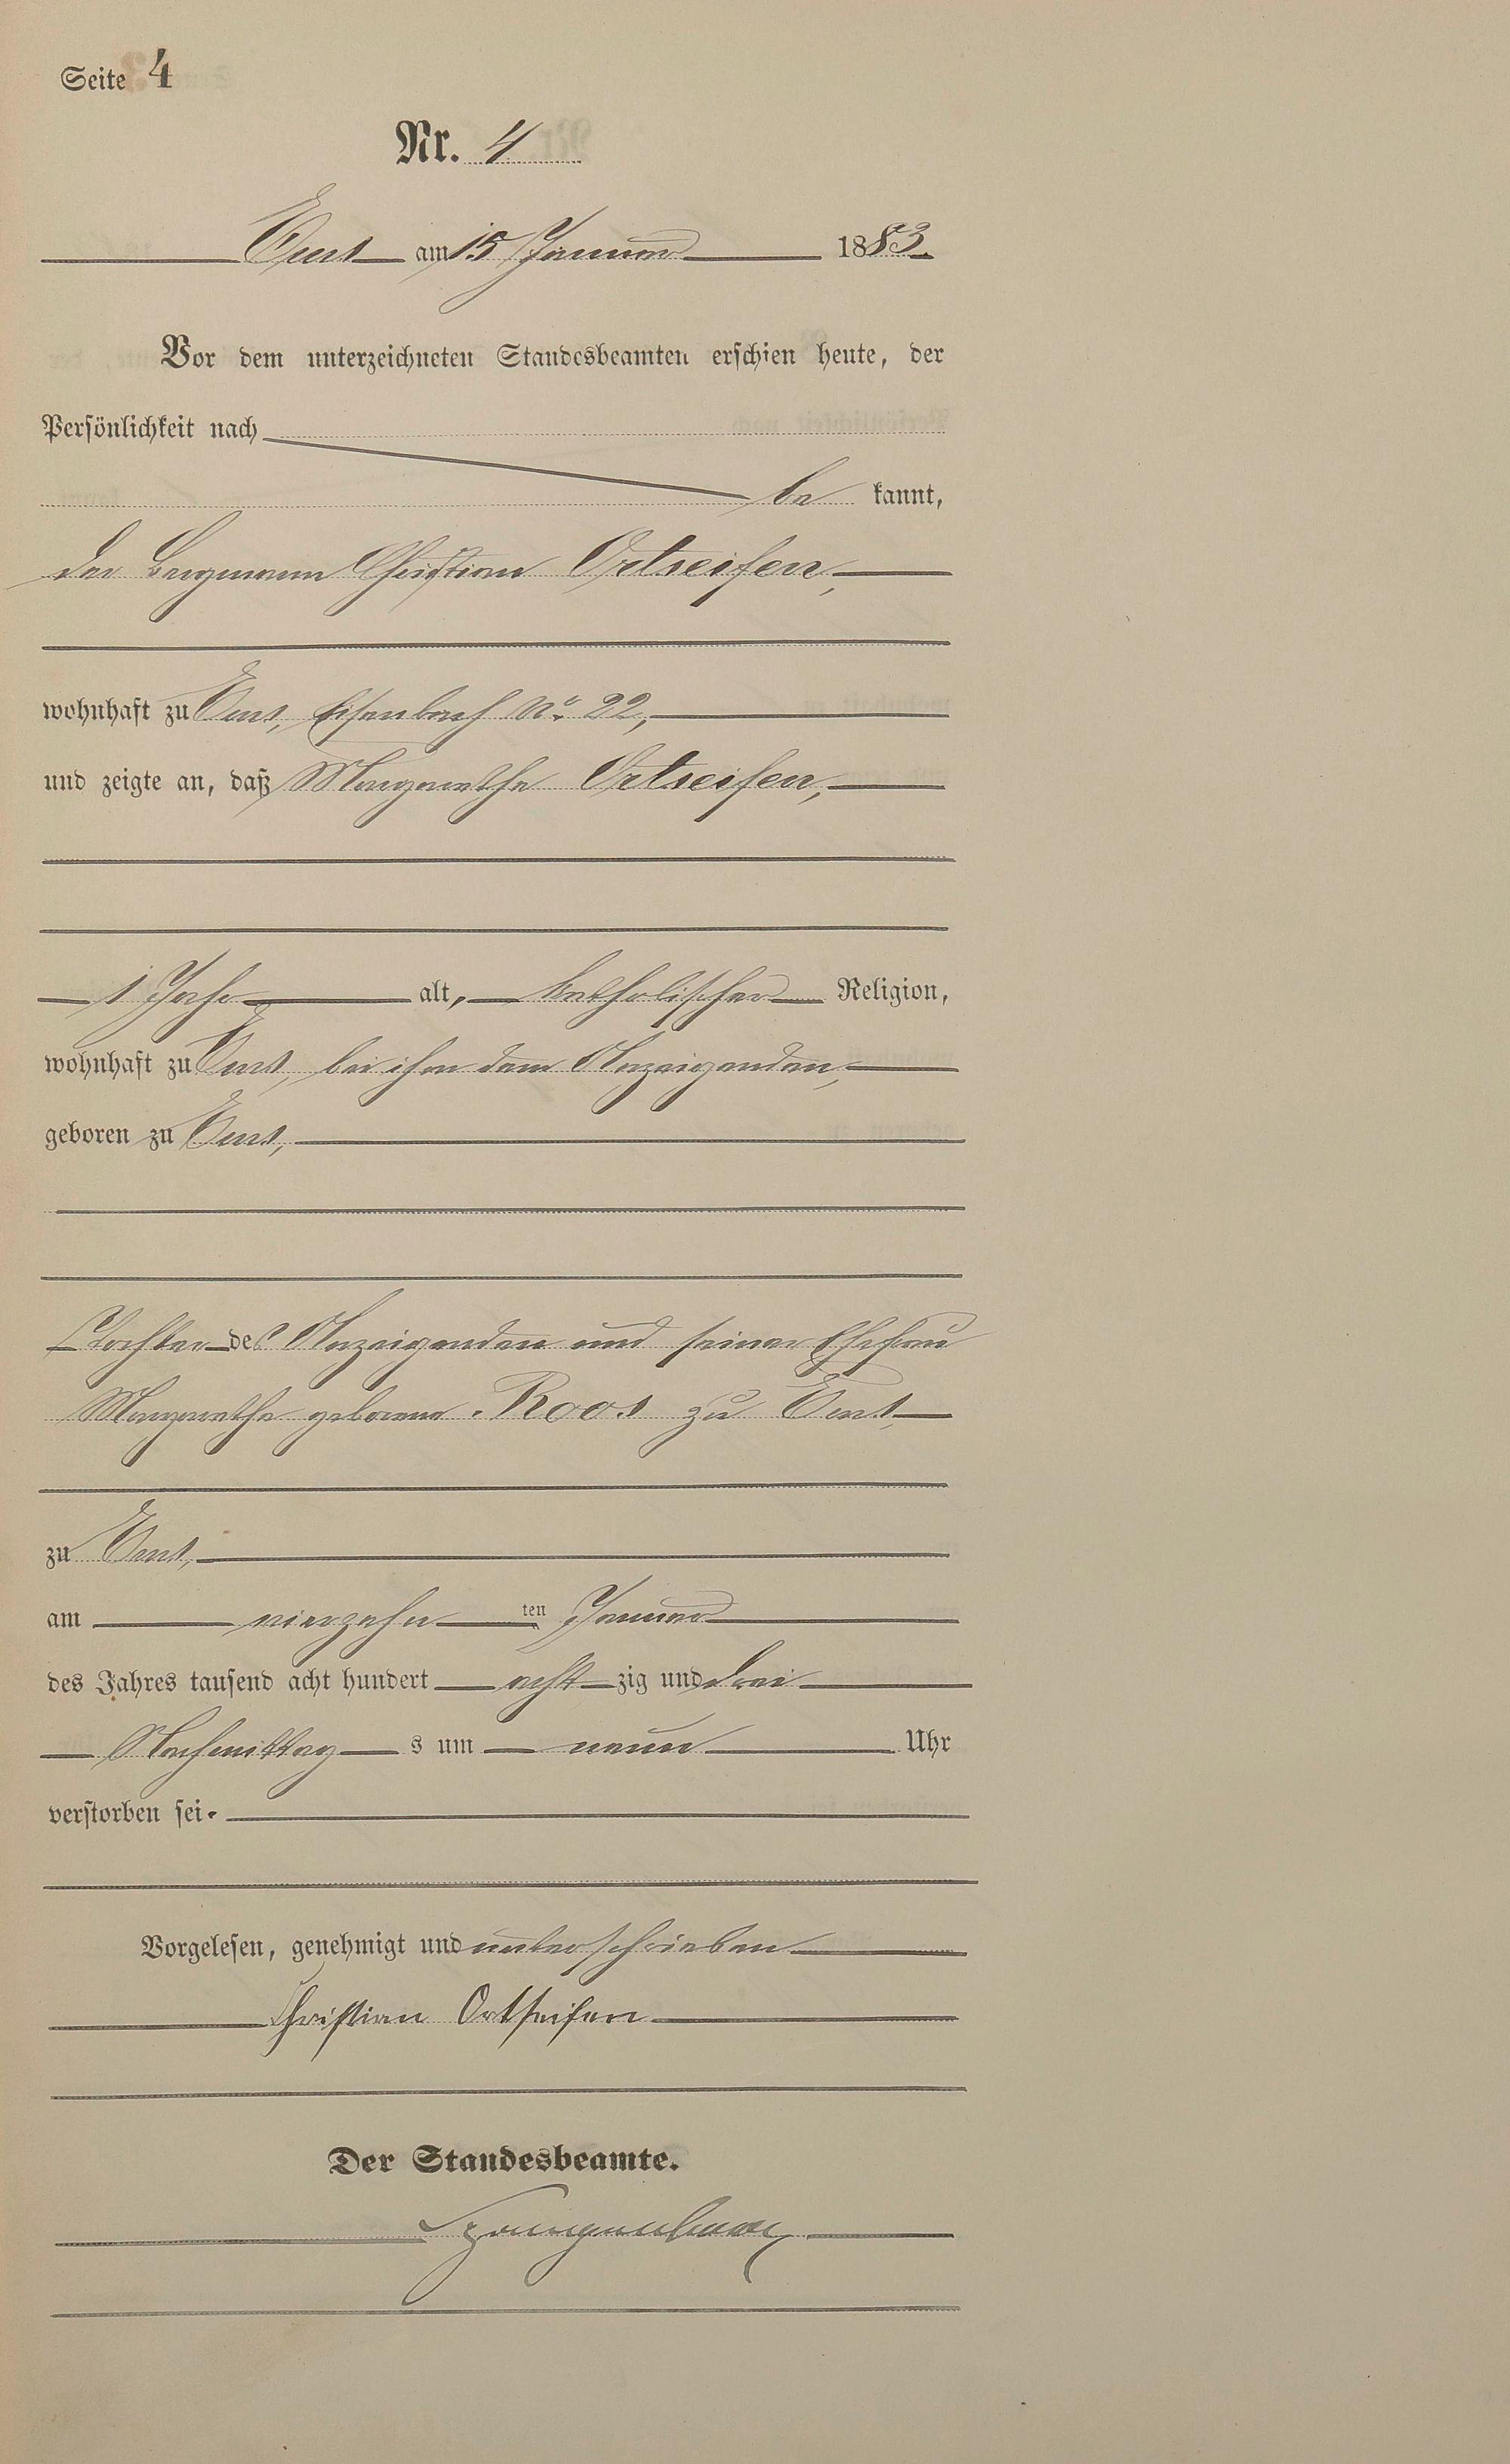 Seite 4
Nr. 4
Ems am 15 Januar 1883.
Vor dem unterzeichneten Standesbeamten erschien heute, der
Persönlichkeit nach
be kannt,
der Bergmann Christian Ortseifen,
wohnhaft zu Ems, Eisenbach No. 22,
und zeigte an, daß Margarethe Ortseifen,
1 Jahr alt, katholischer Religion,
wohnhaft zu Ems, bei ihm dem Anzeigenden,
geboren zu Ems,
Tochter des Anzeigenden und seiner Ehefrau
Margarethe geborene Roos zu Ems,
zu Ems,
am vierzehn ten Januar
des Jahres tausend acht hundert acht zig und drei
Nachmittag s um neun Uhr
verstorben sei.
Vorgelesen, genehmigt und unterschrieben
Christian Ortseifen
Der Standesbeamte.